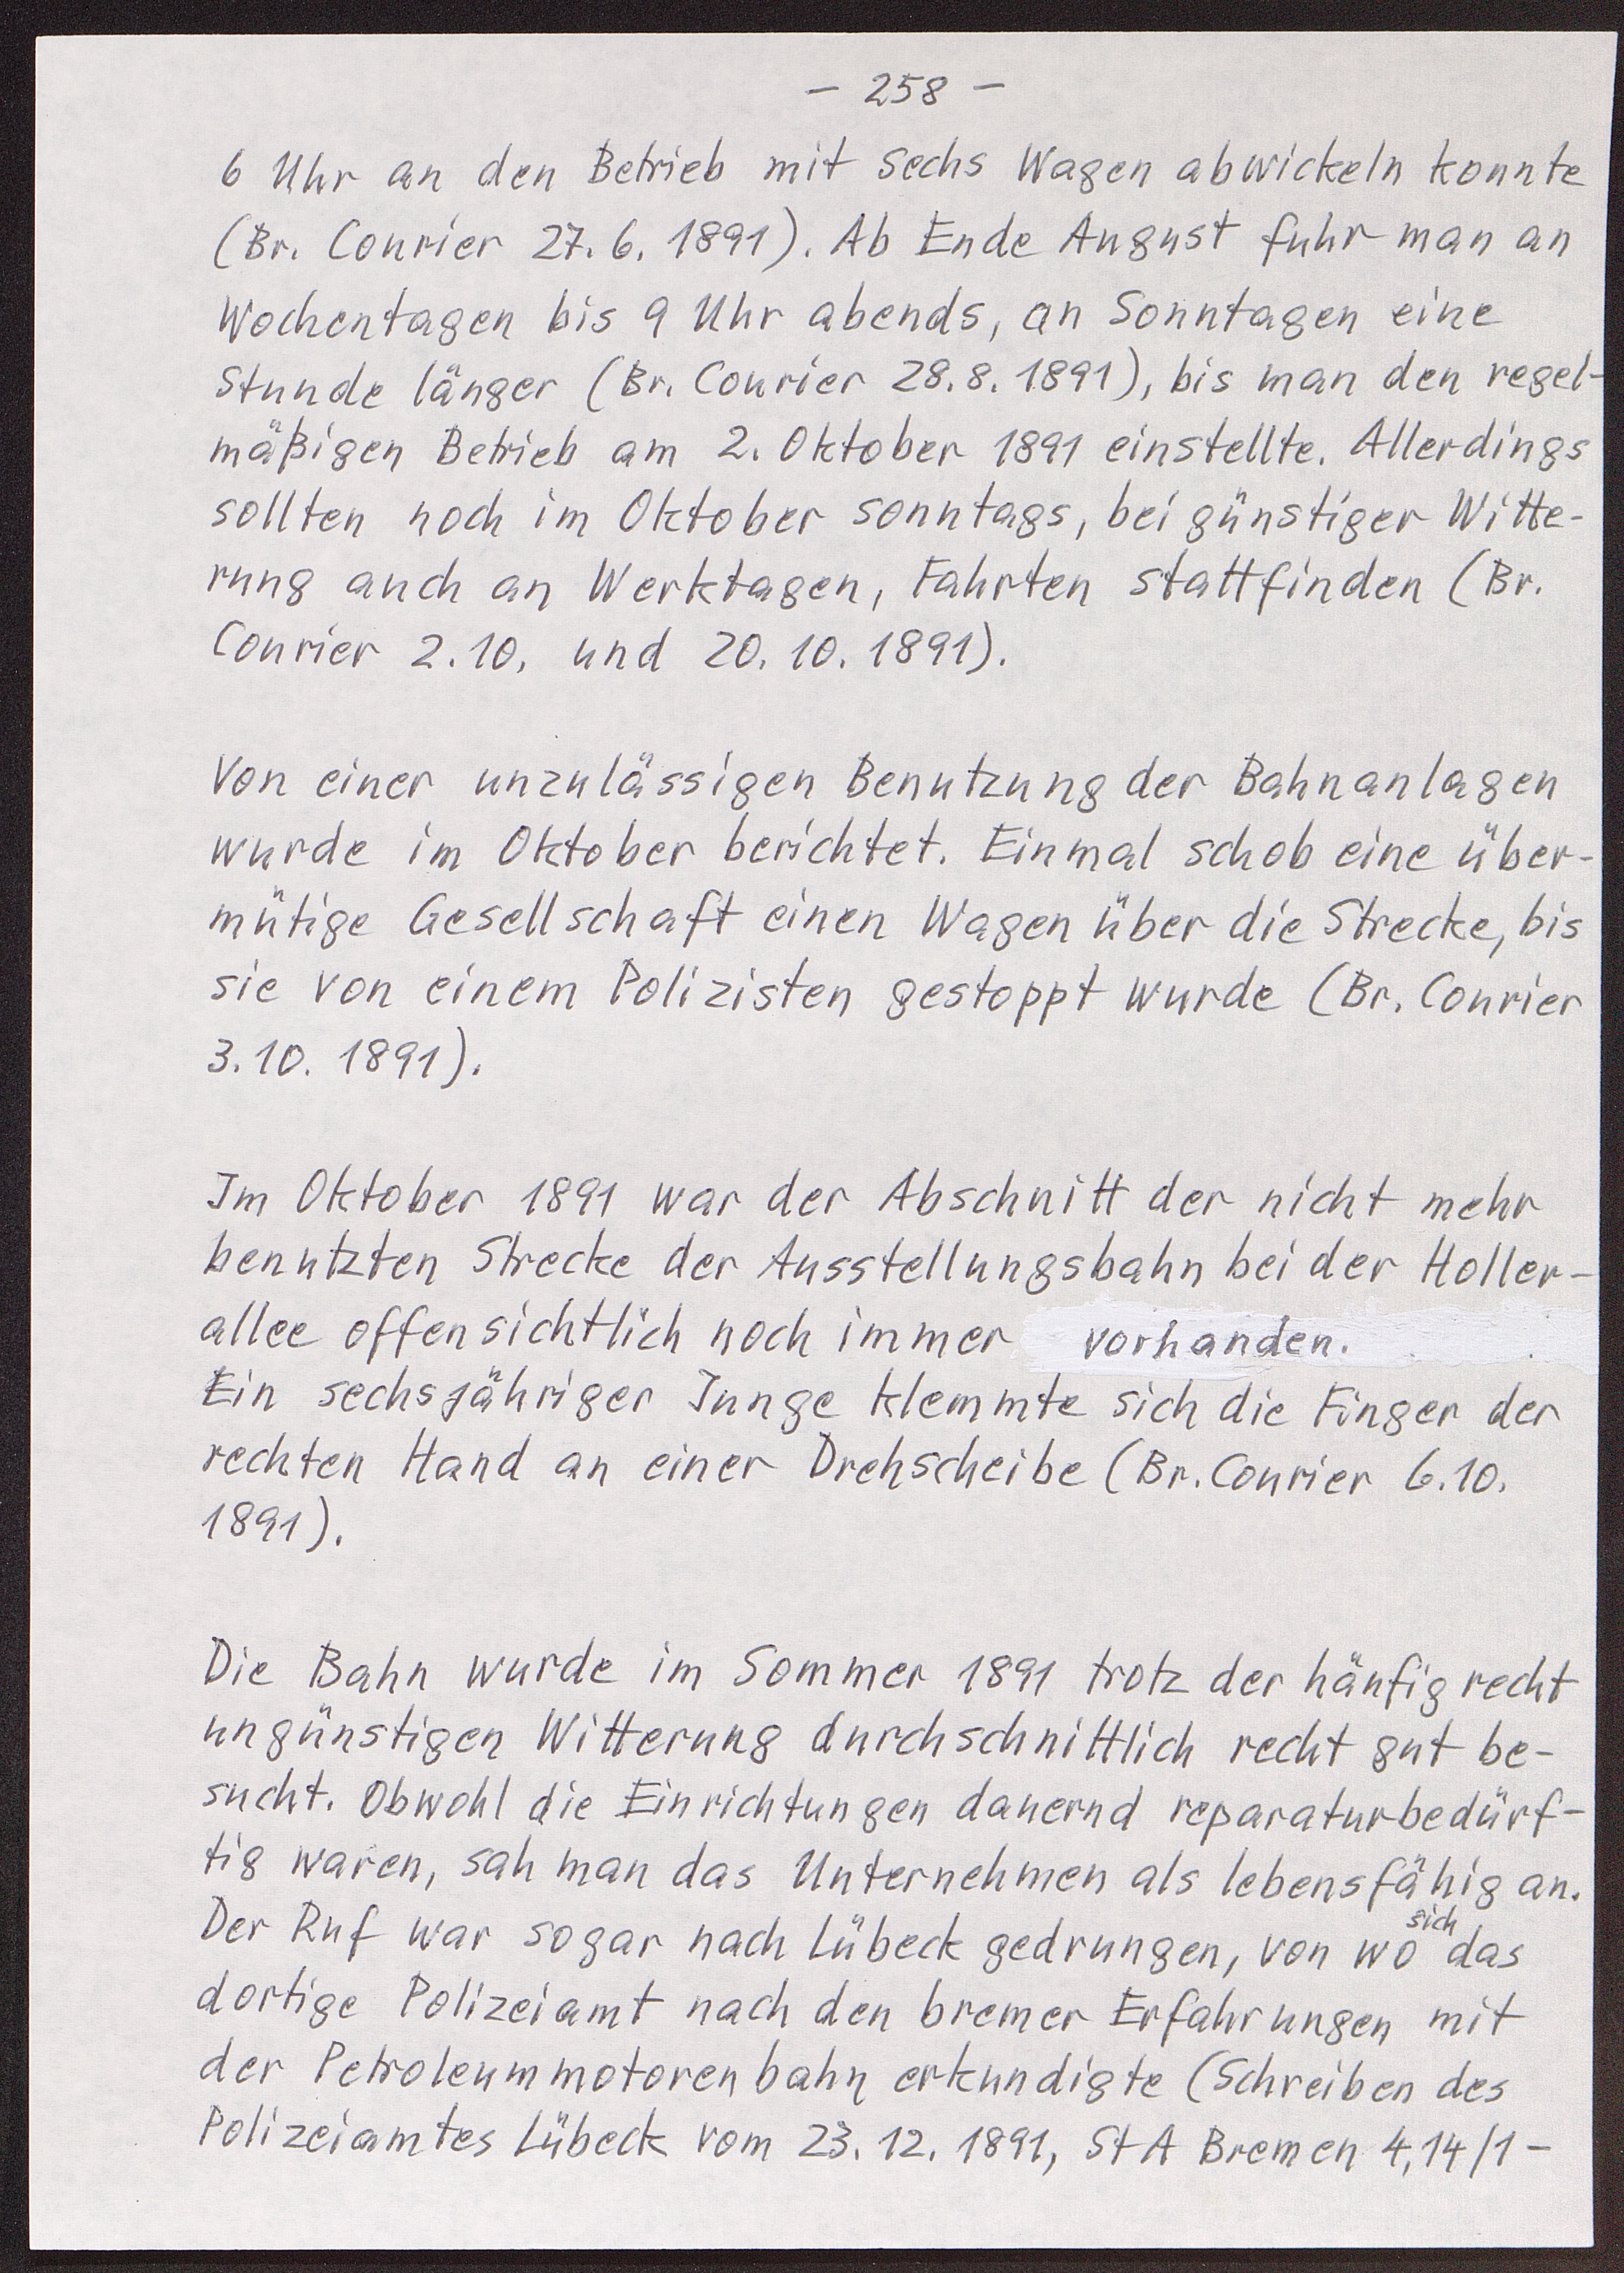 – 258 –
6 Uhr an den Betrieb mit sechs Wagen abwickeln konnte
(Br. Courier 27.6.1891). Ab Ende August fuhr man an
Wochentagen bis 9 Uhr abends, an Sonntagen eine
Stunde länger (Br. Courier 28.8.1891), bis man den regel-
mäßigen Betrieb am 2. Oktober 1891 einstellte. Allerdings
sollten noch im Oktober sonntags, bei günstiger Witte-
rung auch an Werktagen, Fahrten stattfinden (Br.
Courier 2.10. und 20.10.1891).
Von einer unzulässigen Benutzung der Bahnanlagen
wurde im Oktober berichtet. Einmal schob eine über-
mütige Gesellschaft einen Wagen über die Strecke, bis
sie von einem Polizisten gestoppt wurde (Br. Courier
3.10.1891).
Im Oktober 1891 war der Abschnitt der nicht mehr
benutzten Strecke der Ausstellungsbahn bei der Holler-
allee offensichtlich noch immer vorhanden.
Ein sechsjähriger Junge klemmte sich die Finger der
rechten Hand an einer Drehscheibe (Br. Courier 6.10.
1891).
Die Bahn wurde im Sommer 1891 trotz der häufig recht
ungünstigen Witterung durchschnittlich recht gut be-
sucht. Obwohl die Einrichtungen dauernd reparaturbedürf-
tig waren, sah man das Unternehmen als lebensfähig an.
Der Ruf war sogar nach Lübeck gedrungen, von wo sich das
dortige Polizeiamt nach den bremer Erfahrungen mit
der Petroleummotorenbahn erkundigte (Schreiben des
Polizeiamtes Lübeck vom 23.12.1891, StA Bremen 4,14/1-